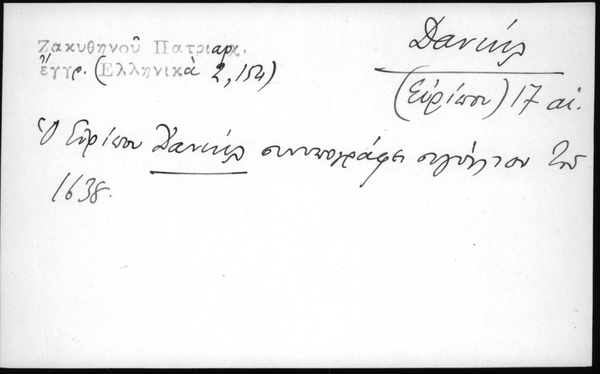 Ζακυθηνοῦ Πατριαρχ.
ἔγγρ. (Ἑλληνικὰ 2, 154)
Δανιὴλ
(Εὐρίπου) 17 αἰ.
Ὁ Εὐρίπου Δανιὴλ συνυπογράφει σιγίλλιον τοῦ
1638.